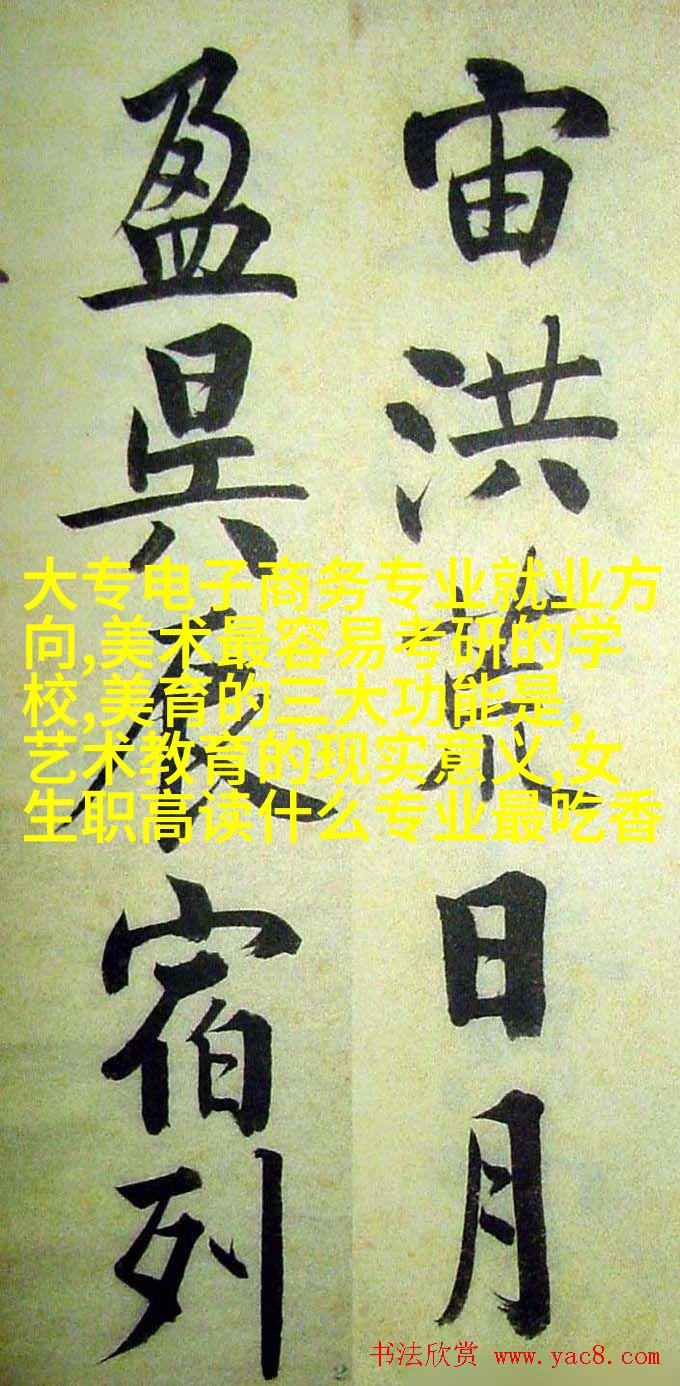 宙洪荒日月
盈昃辰宿列
大专电子商务专业就业方
向,美术最容易考研的学
校,美育的三大功能是,
艺术教育的现实意义,女
生职高读什么专业最吃香
书法欣赏 www.yac8.com